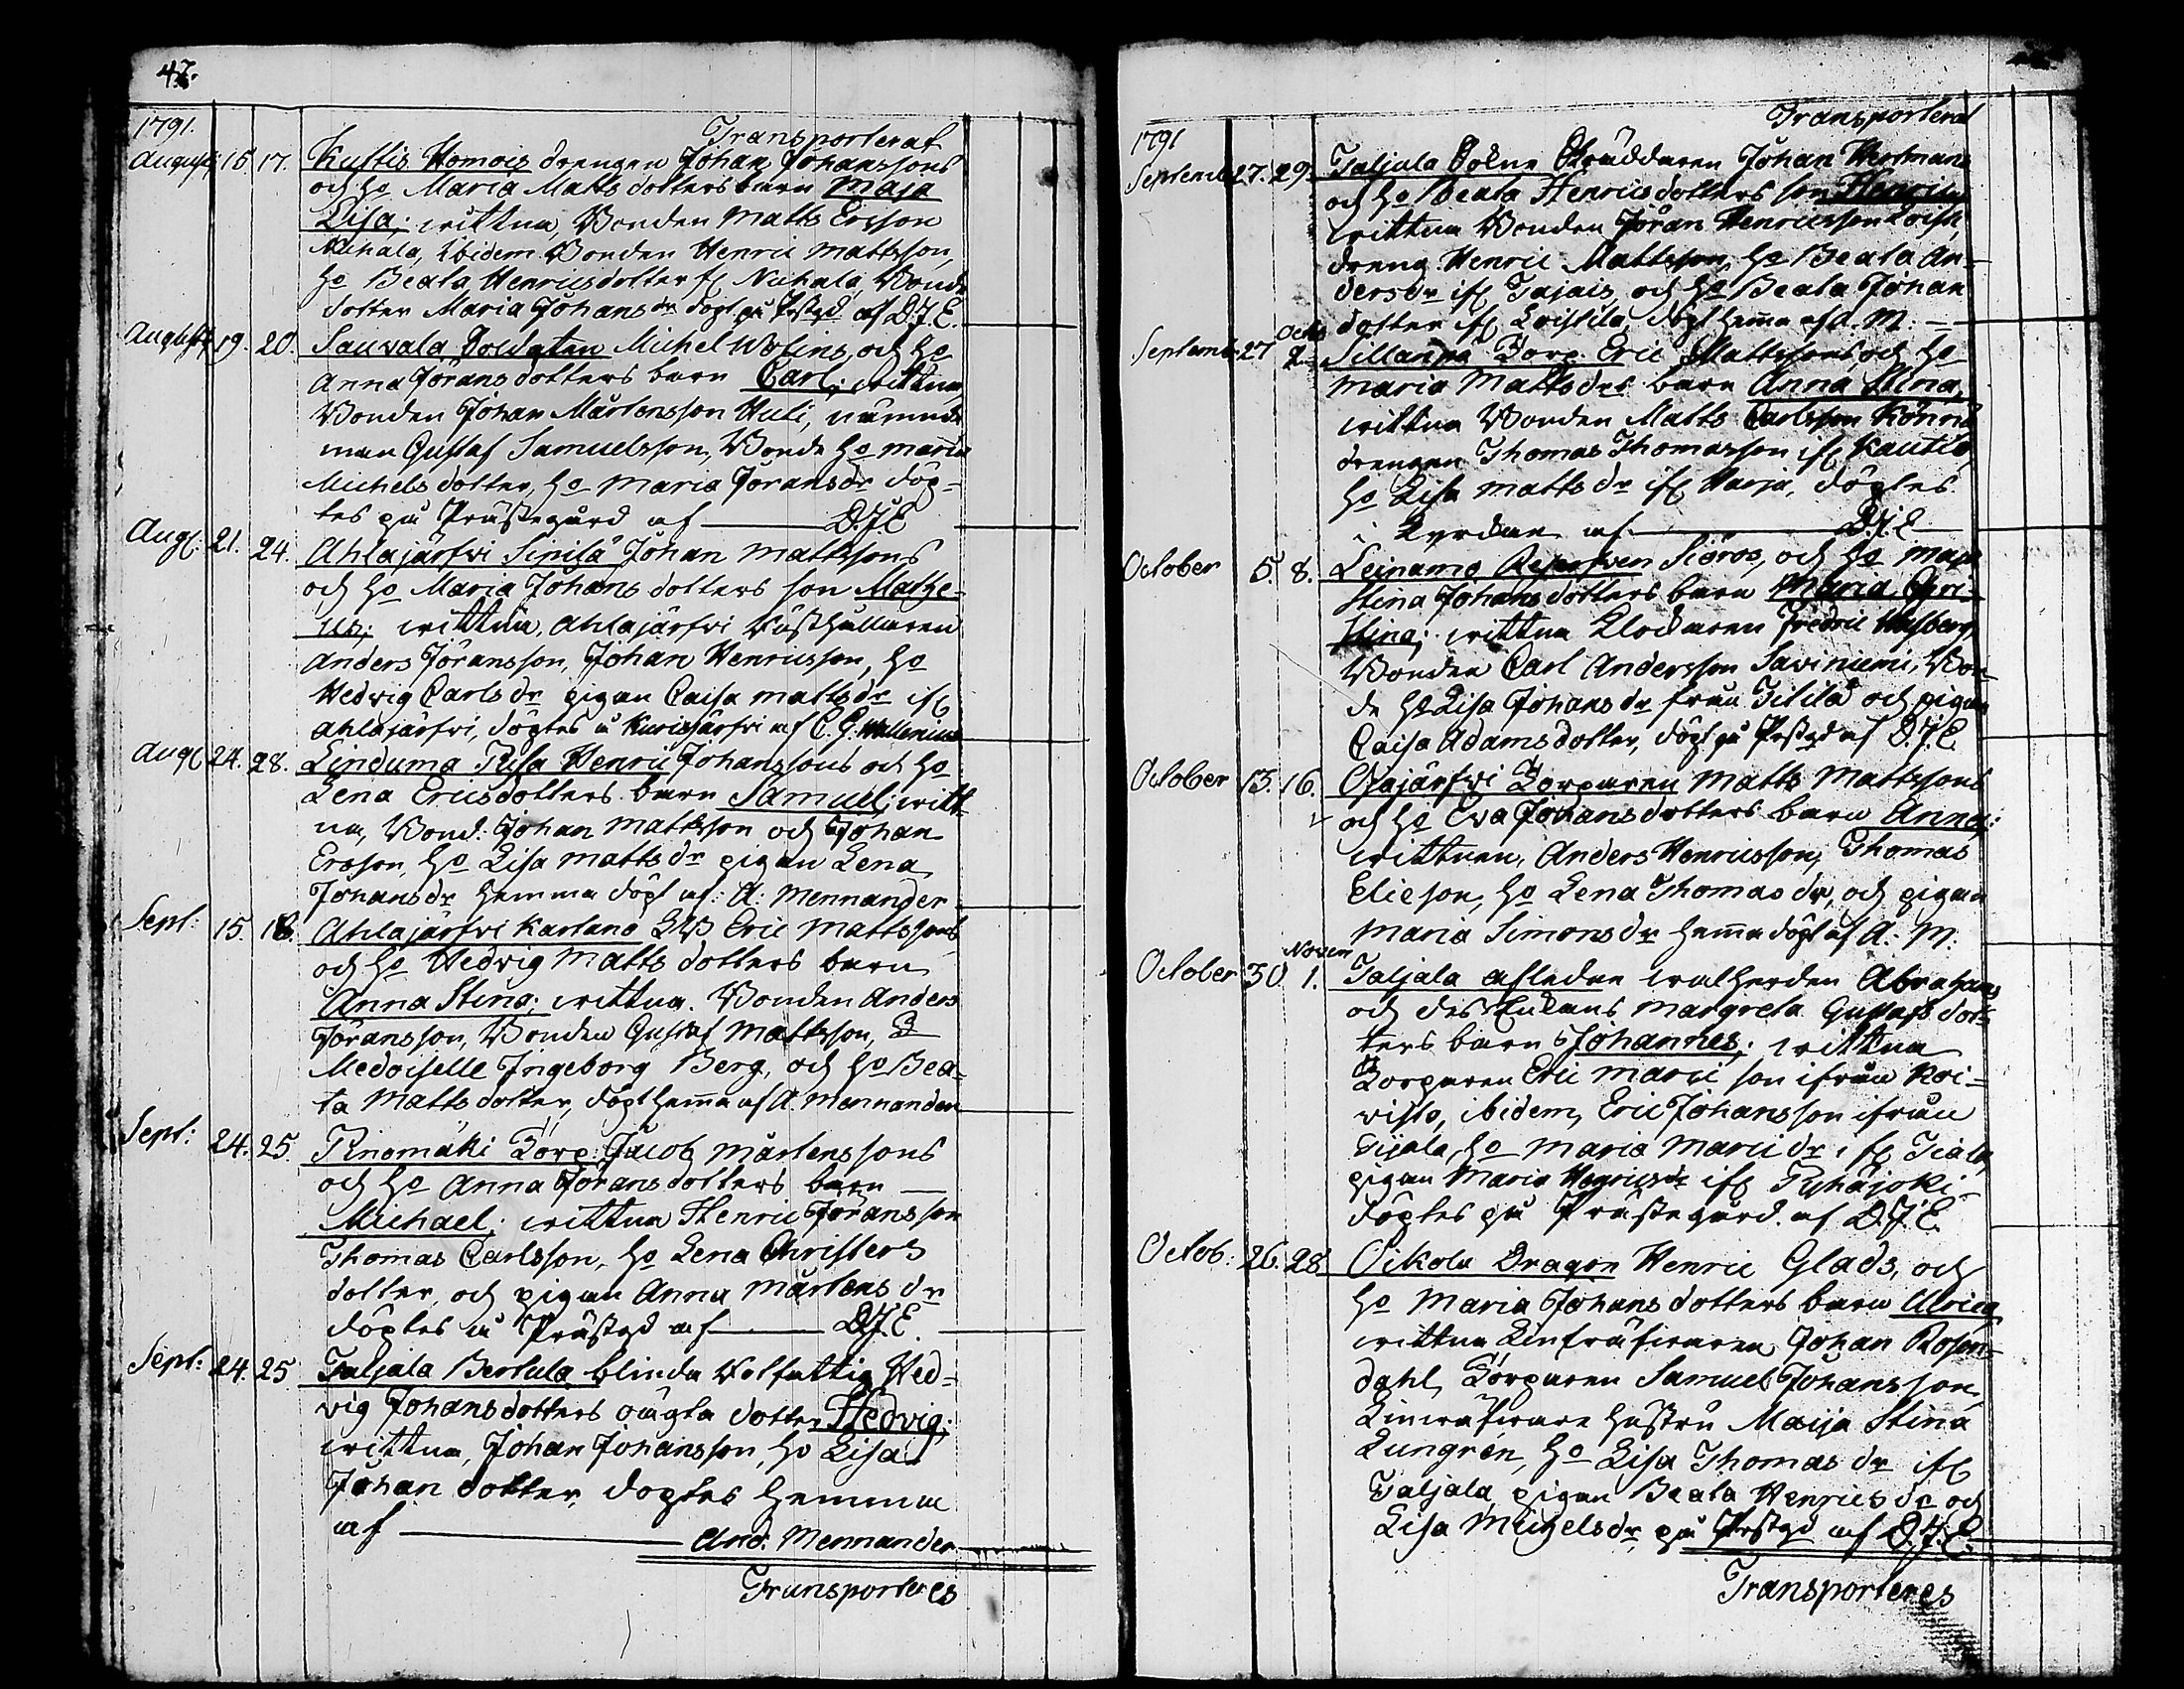 47.
1791.
Transporterat
Augusti 15. 17. Kustis Homois drengen Johan Johanssons
och ho Maria Matts dotters barn Maja
Lisa; wittna, Bonden Matts Ersson
Nuhala, Ibidem Bonden Henric Mattsson,
ho Beata Henricsdotter fr Nuhala, Bonde
dotter Maria Johansdr döpt på Prstgd af D.J.E.
Augusti 19. 20. Sauvala Soldaten Michel Wolins, och ho
Anna Jörans dotters barn Carl; wittna,
Bonden Johan Mårtensson Huti, nämnde
man Gustaf Samuelsson, Bonde ho Maria
Michels dotter, ho Maria Jöransdr döp-
tes på Prästegård af D.J.E
Aug: 21. 24. Ahlajärfwi Sipilä Johan Mattssons
och ho Maria Johans dotters son Mathe-
us; wittna, Ahlajärfwi
Anders Jöransson, Johan Henricsson, ho
Hedvig Carls dr pigan Caisa Matts dr ifr
Ahlajärfwi, döptes i Kurisjärfwi af C. G. Wallenius
Aug 24. 28. Linduma Pusa Henric Johanssons och ho
Lena Ericsdotters barn Samuel; witt-
na, Bond: Johan Mattsson och Johan
Ersson, ho Lisa Matts dr pigan Lena
Johansdr hemma döpt af: A: Mennander
Sept: 15. 18. Ahlajärfwi Kartano Eric Mattssons
och ho Hedvig Matts dotters barn
Anna Stina; wittna. Bonden Anders
Jöransson, Bonden Gustaf Mattsson,
Medoiselle Ingeborg Berg, och ho Bea-
ta Matts dotter, döpt hema af A. Mennander
Sept: 24. 25. Pinomäki Torp: Jacob Mårtenssons
och ho Anna Jörans dotters barn
Michael; wittna Henric Jöransson
Thomas Carlsson, ho Lena Christers
dotter, och pigan Anna Mårtens dr
döptes i Prästgd af D.J.E.
Sept: 24. 25. Taljala Bertula blinda Hed-
vig Johansdotters oägta dotter Hedvig;
wittna, Johan Johansson, ho Lisa
Johan dotter, döptes hemma
af And: Mennander
Transporteres
1791
Transporterat
Septemb 27. 29. Taljala Johan Hertmans
och ho Beata Henricsdotters son Henric
wittna Bonden Jöran Henricsson
dreng Henric Mattsson, ho Beata An-
dersdr ifr Tajais och ho Beata Johan
dotter ifr döpt hema af A. M:
Septemb: 27 Octo 2 Sillanpä Torp: Eric Mattssons, och ho
Maria Matts drs barn Anna Stina,
wittna Bonden Matts Carlsson Könni
drengen Thomas Thomasson ifr Kautio,
ho Lisa Matts dr ifr Harja, döptes
i Kyrckan af D.J.E
October 5. 8. Leinamo Sioros, och ho Maja
Stina Johans dotters barn Maria Chri-
stina; wittna Klockaren Fredric
Bonden Carl Andersson Saviniemi, Bon-
de ho Lisa Johans dr från och pigan
Caisa Adams dotter, döpt på Prstgd af D.J.E.
October 13. 16. Ojajärfwi Torparen Matts Mattssons
och ho Eva Johans dotters barn Anna;
wittnen, Anders Henricsson, Thomas
Elieson, ho Lena Thomas dr, och pigan
Maria Simons dr hema döpt af A. M:
October 30 Novem 1. Taljala afledne walherden Abrahams
och des Enkans Margreta Gustafs dot-
ters barn Johannes; wittna
Torparen Eric Marci son ifrån Koi-
visto, ibidem, Eric Johansson ifrån
ho Maria Marci dr ifr
pigan Maria Henricsdr ifr Pyhäjoki
döptes på Prästegård. af D.J.E.
Octob: 26. 28 Pikola Dragon Henric Glads, och
ho Maria Johans dotters barn Ulrica
wittna Johan Rosen-
dahl, Torparen Samuel Johansson,
hustru Maija Stina
Lungren, ho Lisa Thomas dr ifr
Taljala, pigan Beata Henrics dr och
Lisa Michelsdr, på Prstgd af D.J.E.
Transporteres